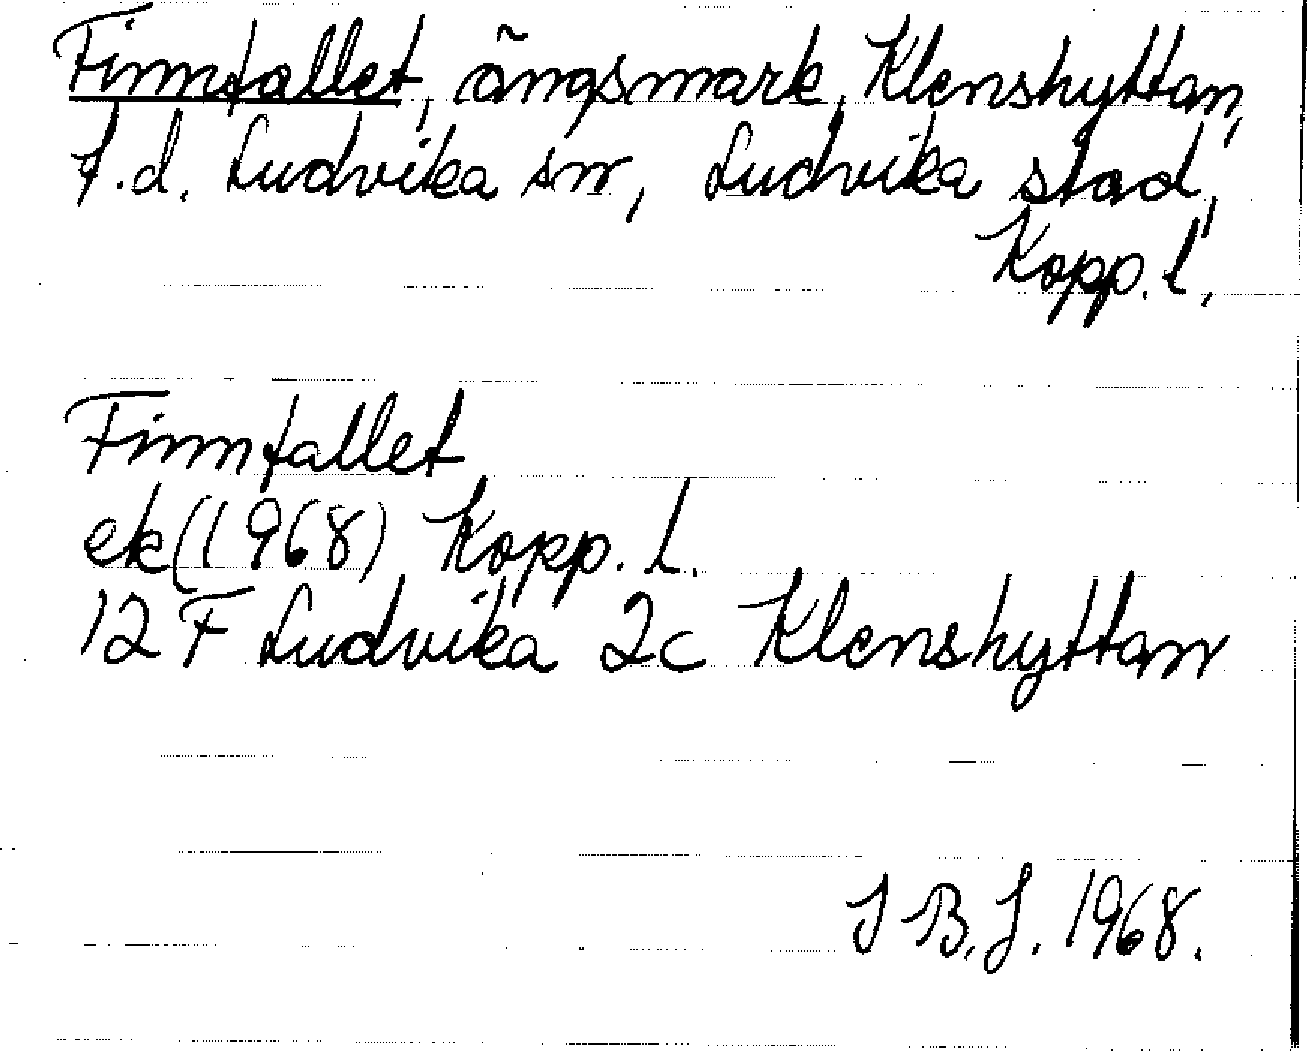 Finnfallet, ängsmark, Klenshyttan,
f.d. Ludvika sn, Ludvika stad,
Kopp. l.
Finnfallet
ek (1968) Kopp. l.
12 F Ludvika 2c Klenshyttan
I B.J. 1968.